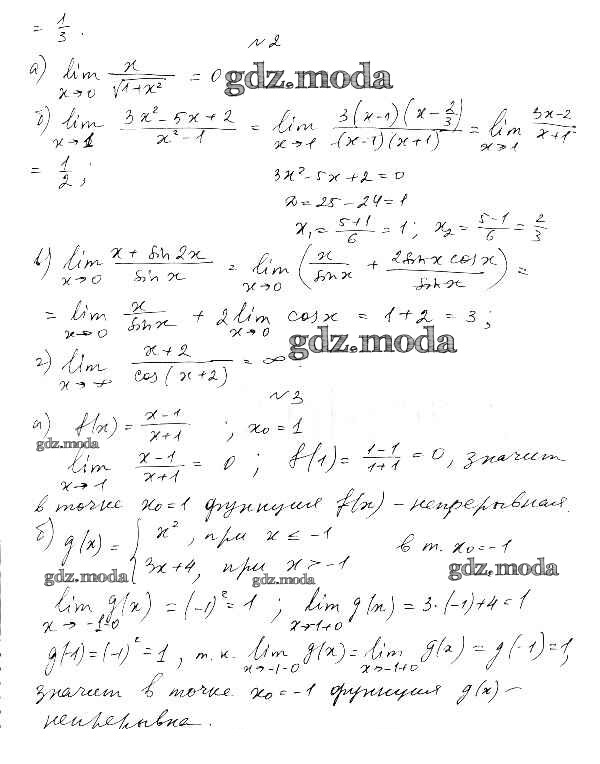 = 1/3 .
N 2
а) lim x→0 x/√(1+x²) = 0
gdz.moda
б) lim x→1 (3x² - 5x + 2)/(x² - 1) = lim x→1 3(x-1)(x - 2/3)/((x-1)(x+1)) = lim x→1 (3x-2)/(x+1) =
= 1/2 ;
3x² - 5x + 2 = 0
D = 25 - 24 = 1
x₁ = (5+1)/6 = 1; x₂ = (5-1)/6 = 2/3
в) lim x→0 (x + sin 2x)/sin x = lim x→0 (x/sin x + 2 sin x cos x/sin x) =
= lim x→0 x/sin x + 2 lim x→0 cos x = 1 + 2 = 3 ;
gdz.moda
г) lim x→∞ (x+2)/cos(x+2) = ∞
N 3
а) f(x) = (x-1)/(x+1) ; x₀ = 1
gdz.moda
lim x→1 (x-1)/(x+1) = 0 ; f(1) = (1-1)/(1+1) = 0, значит
в точке x₀ = 1 функция f(x) - непрерывная.
б) g(x) = { x², при x ≤ -1
3x + 4, при x > -1
в т. x₀ = -1
gdz.moda
gdz.moda
gdz.moda
lim x→-1-0 g(x) = (-1)² = 1 ; lim x→-1+0 g(x) = 3·(-1)+4 = 1
g(-1) = (-1)² = 1, т.к. lim x→-1-0 g(x) = lim x→-1+0 g(x) = g(-1) = 1,
значит в точке x₀ = -1 функция g(x) -
непрерывна.